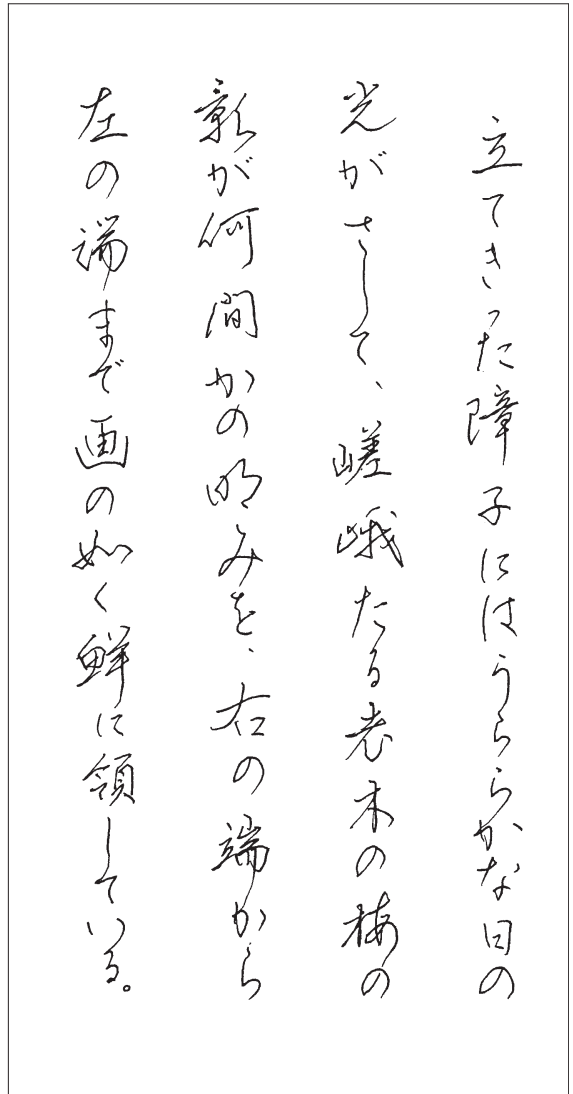 立てきった障子にはうららかな日の
光がさして、嵯峨たる老木の梅の
影が何間かの明みを、右の端から
左の端まで画の如く鮮に領している。